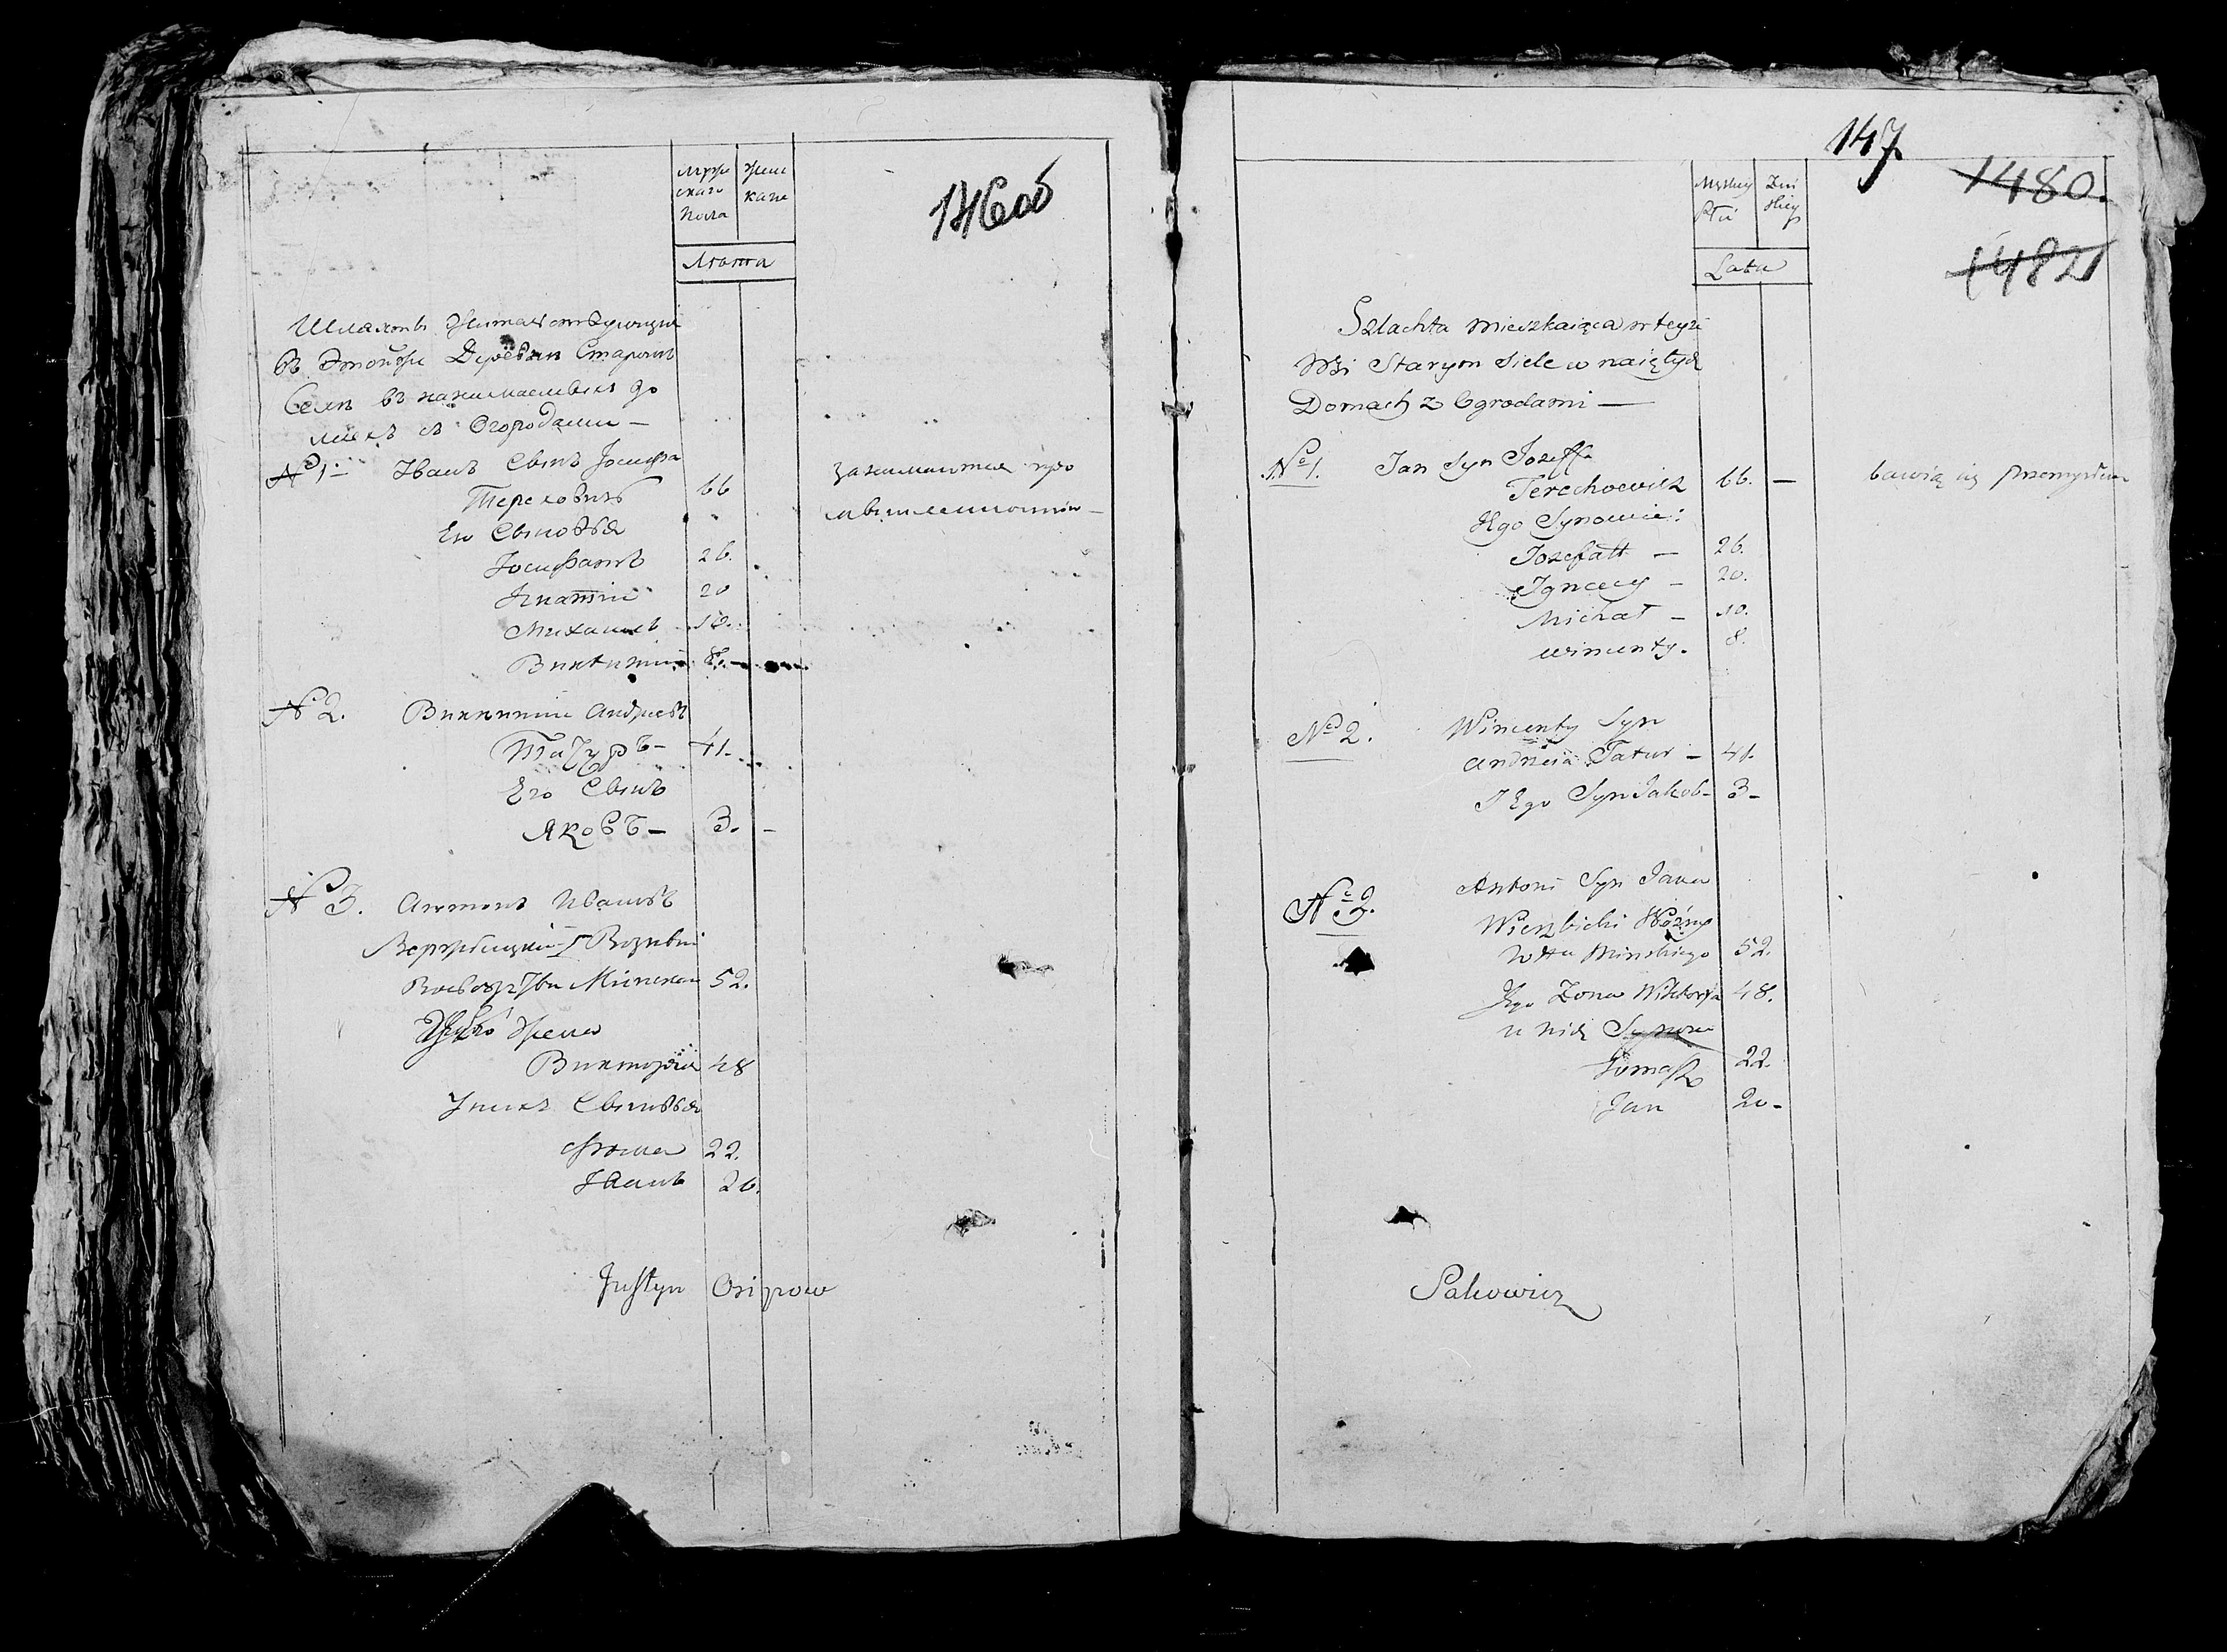 146об
мужескаго пола
женска
лѣта
Шляхты
въ Этойже Деревни Старомъ
Селѣ въ нанимаемыхъ до
махъ съ Огородами —
№ 1. Иванъ Сынъ Іосифа
Тереховичъ 66
занимаются про
мышленностію —
Его Сыновья
Іосифатъ 26.
Игнатій 20
Михаилъ 10.
Викентій 8. —
№ 2. Викентій Андреевъ
Татуръ — 41.
Его Сынъ
Яковъ — 3. —
№ 3. Антонъ Ивановъ
Вержбицкій Возный
Минскаго 52.
Его Жена
Викторія 48
У нихъ Сыновья
Фома 22.
Иванъ 20.
Justyn Osipow
147.
1480.
1482
Męzkiey Płci
Zeń skiey
Lata
Szlachta mieszkaiąca w teyże
Wsi Starym Siele w naiętych
Domach z Ogrodami —
№ 1. Jan Syn Jozeffa
Terechowicz 66. — bawią się przemysłem
Jego Synowie:
Jozefatt — 26.
Ignacy — 20.
Michał — 10.
Wincenty. 8.
№ 2. Wincenty Syn
Andrzeia Tatur — 41.
Jego Syn Jakob — 3 —
№ 2. Antoni Syn Jana
Wierzbicki Woźny
Wttu Minskiego 52.
Jego Zona Wiktorya 48.
u nich Synowie
Tomasz 22.
Jan 20 —
Sakowicz